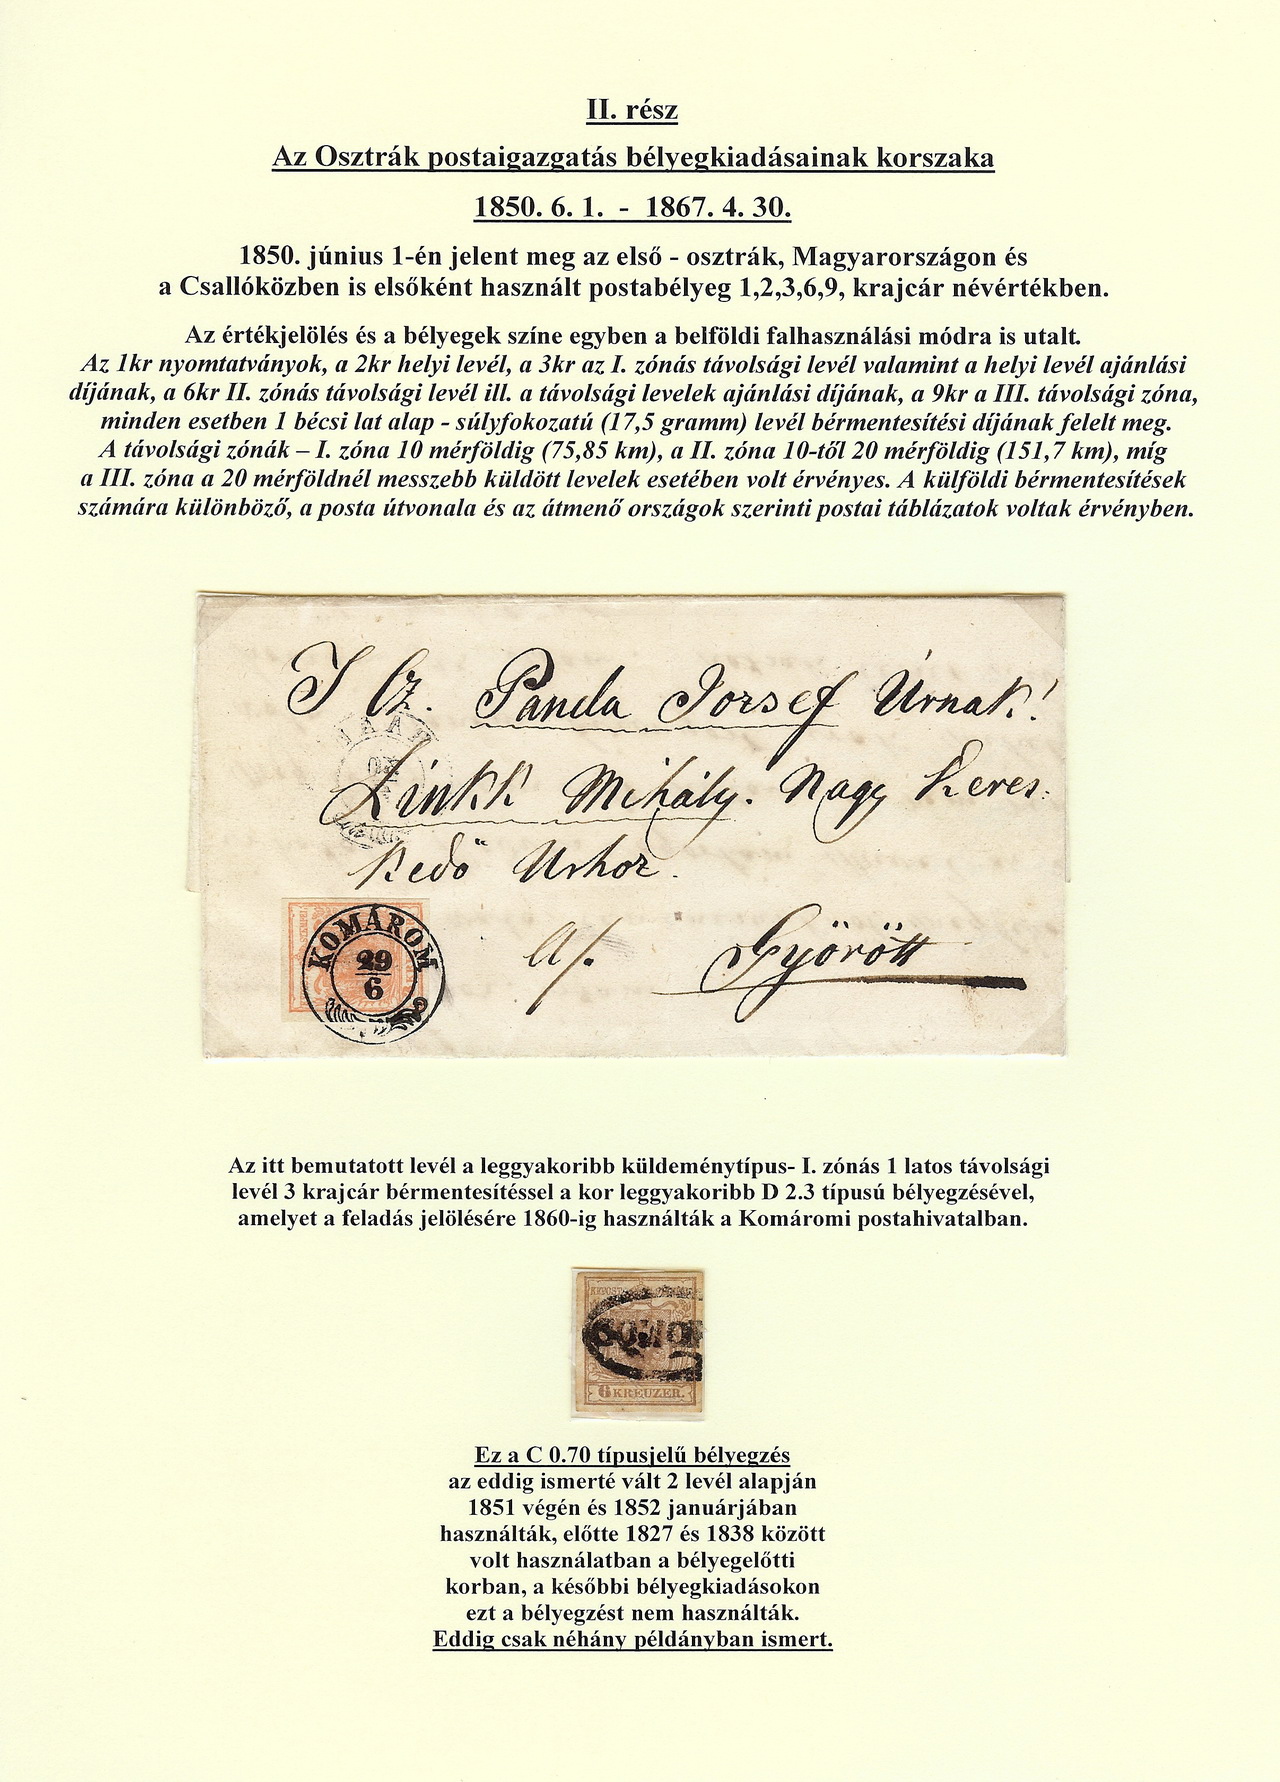 II. rész
Az Osztrák postaigazgatás bélyegkiadásainak korszaka
1850. 6. 1. - 1867. 4. 30.
1850. június 1-én jelent meg az első - osztrák, Magyarországon és
a Csallóközben is elsőként használt postabélyeg 1,2,3,6,9, krajcár névértékben.
Az értékjelölés és a bélyegek színe egyben a belföldi falhasználási módra is utalt.
Az 1kr nyomtatványok, a 2kr helyi levél, a 3kr az I. zónás távolsági levél valamint a helyi levél ajánlási
díjának, a 6kr II. zónás távolsági levél ill. a távolsági levelek ajánlási díjának, a 9kr a III. távolsági zóna,
minden esetben 1 bécsi lat alap - súlyfokozatú (17,5 gramm) levél bérmentesítési díjának felelt meg.
A távolsági zónák – I. zóna 10 mérföldig (75,85 km), a II. zóna 10-től 20 mérföldig (151,7 km), míg
a III. zóna a 20 mérföldnél messzebb küldött levelek esetében volt érvényes. A külföldi bérmentesítések
számára különböző, a posta útvonala és az átmenő országok szerinti postai táblázatok voltak érvényben.
Panda Jozsef Úrnak!
Linkk Mihály. Nagy Keres:
kedő Urhoz.
a/. Györött
KOMÁROM
29
6
Az itt bemutatott levél a leggyakoribb küldeménytípus- I. zónás 1 latos távolsági
levél 3 krajcár bérmentesítéssel a kor leggyakoribb D 2.3 típusú bélyegzésével,
amelyet a feladás jelölésére 1860-ig használták a Komáromi postahivatalban.
6 KREUZER.
Ez a C 0.70 típusjelű bélyegzés
az eddig ismerté vált 2 levél alapján
1851 végén és 1852 januárjában
használták, előtte 1827 és 1838 között
volt használatban a bélyegelőtti
korban, a későbbi bélyegkiadásokon
ezt a bélyegzést nem használták.
Eddig csak néhány példányban ismert.